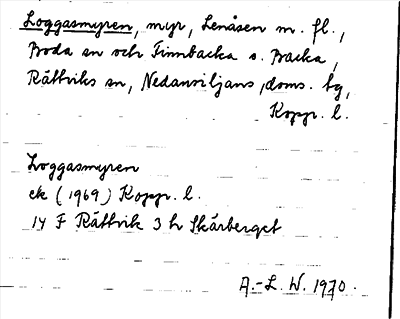 Loggasmyren, myr, Lenåsen m. fl.,
Boda sn och Finnbacka s. Backa,
Rättviks sn, Nedansiljans, doms. tg,
Kopp. l.
Loggasmyren
ek (1969) Kopp. l.
14 F Rättvik 3 h Skärberget
A.-L. W. 1970.